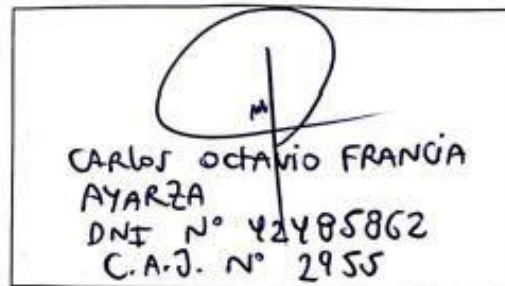 CARLOS OCTAVIO FRANCIA
AYARZA
DNI N° 42485862
C.A.J. N° 2955